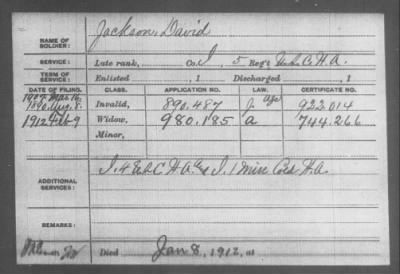 NAME OF SOLDIER: Jackson, David
SERVICE: Late rank, Co. I, 5 Reg't U.S.C.H.A.
TERM OF SERVICE: Enlisted , 1 Discharged , 1
DATE OF FILING. CLASS. APPLICATION NO. LAW. CERTIFICATE NO.
1890, Aug. 8. Invalid, 890.487 J. Age 922.014
1912 Feb 9 Widow, 980.185 a 744.266
Minor,
ADDITIONAL SERVICES: I. 4 U.S.C.H.A. & I. 1 Miss Cold H.A.
REMARKS:
Died Jan 8, 1912, at